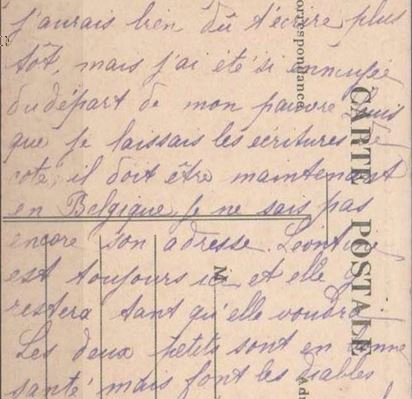 j'aurais bien dû t'écrire plus
tôt, mais j'ai été si ennuyée
du départ de mon pauvre Louis
que je laissais les écritures de
coté, il doit être maintenant
en Belgique, je ne sais pas
encore son adresse. Léontine
est toujours ici et elle y
restera tant qu'elle voudra
Les deux petits sont en bonne
santé mais font les diables
CARTE POSTALE
Correspondance
M
Ad